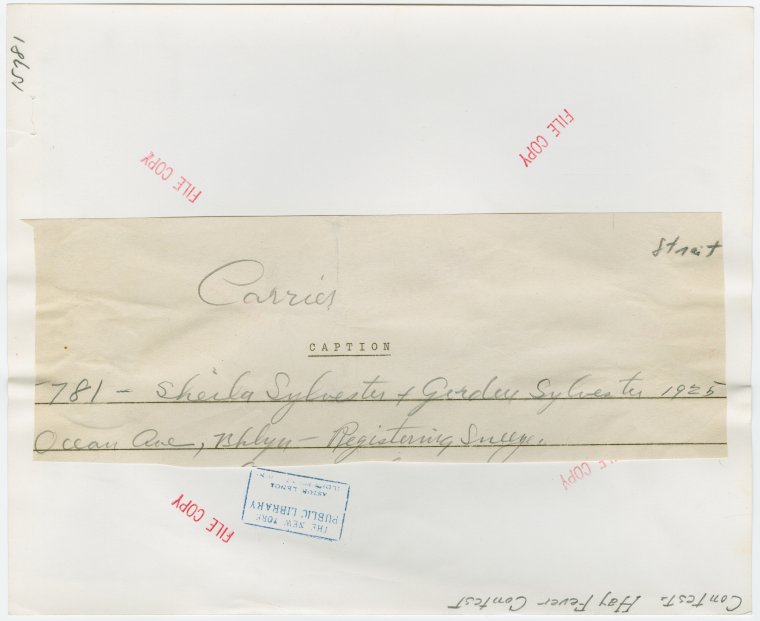 1865N
FILE COPY
FILE COPY
Strait
Carrier
CAPTION
781 - Sheila Sylvester + Gordey Sylvester 1925
Ocean Ave, Bklyn - Registering Sneeze.
FILE COPY
FILE COPY
THE NEW YORK
PUBLIC LIBRARY
ASTOR LENOX
Contest. Hay Fever Contest